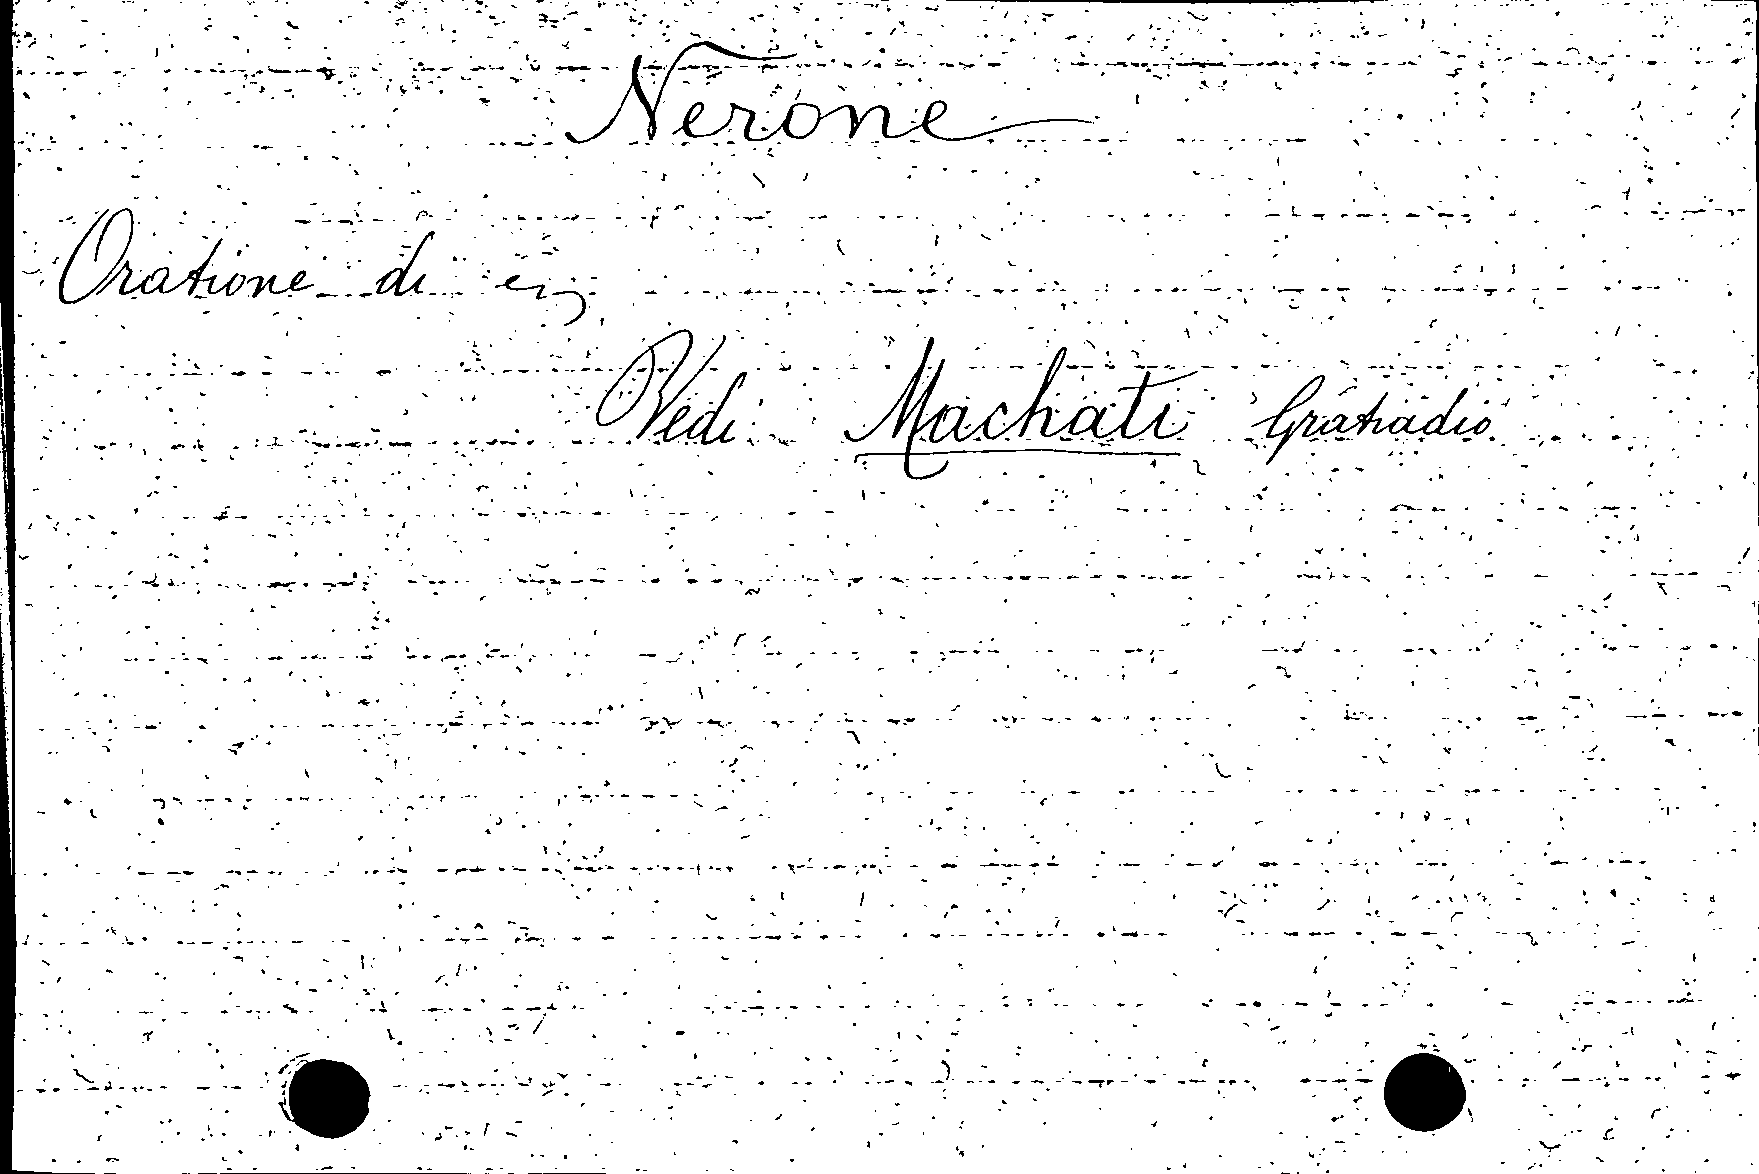 Nerone
Oratione di
Vedi Machati Gratiadio